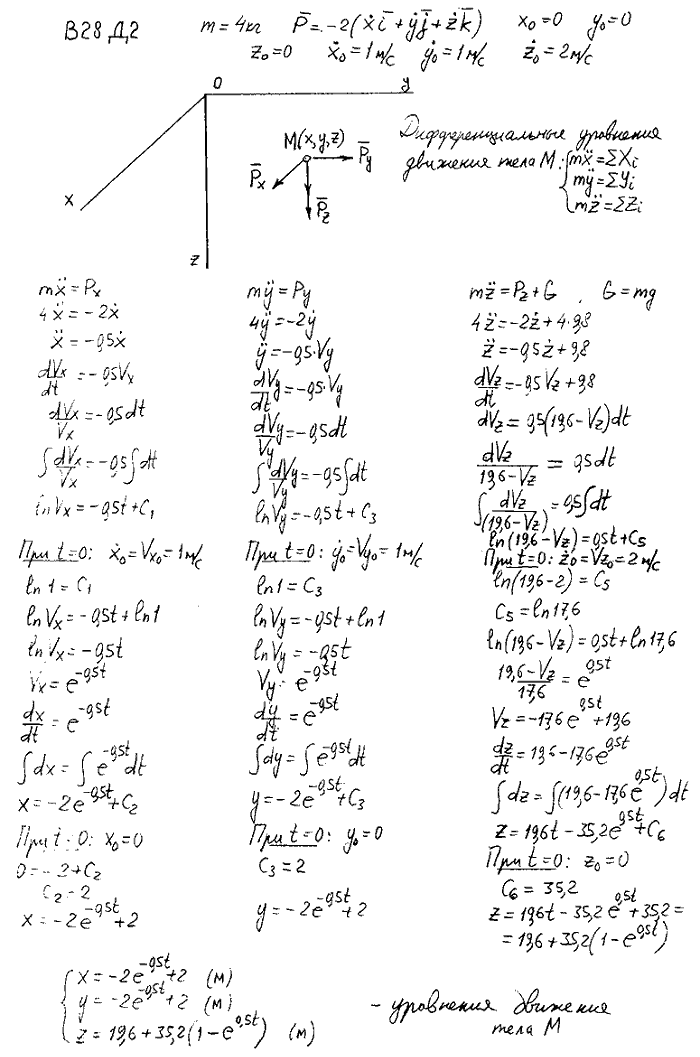 В28 Д2 m = 4кг P̄ = -2(ẋī + ẏj̄ + żk̄) x₀ = 0 y₀ = 0
z₀ = 0 ẋ₀ = 1м/с ẏ₀ = 1м/с ż₀ = 2м/с
O y
M(x,y,z) P̄y
P̄x
P̄z
x
z
Дифференциальные уровнения
движения тела M: { mẍ = ΣXi
mÿ = ΣYi
mz̈ = ΣZi
mẍ = Px
4ẍ = -2ẋ
ẍ = -0,5ẋ
dVx/dt = -0,5Vx
dVx/Vx = -0,5dt
∫dVx/Vx = -0,5∫dt
lnVx = -0,5t + C₁
При t=0: ẋ₀ = Vx₀ = 1м/с
ln1 = C₁
lnVx = -0,5t + ln1
lnVx = -0,5t
Vx = e^-0,5t
dx/dt = e^-0,5t
∫dx = ∫e^-0,5t dt
x = -2e^-0,5t + C₂
При t=0: x₀ = 0
0 = -2 + C₂
C₂ = 2
x = -2e^-0,5t + 2
mÿ = Py
4ÿ = -2ẏ
ÿ = -0,5·Vy
dVy/dt = -0,5·Vy
dVy/Vy = -0,5dt
∫dVy/Vy = -0,5∫dt
lnVy = -0,5t + C₃
При t=0: ẏ₀ = Vy₀ = 1м/с
ln1 = C₃
lnVy = -0,5t + ln1
lnVy = -0,5t
Vy = e^-0,5t
dy/dt = e^-0,5t
∫dy = ∫e^-0,5t dt
y = -2e^-0,5t + C₃
При t=0: y₀ = 0
C₃ = 2
y = -2e^-0,5t + 2
mz̈ = Pz + G , G = mg
4z̈ = -2ż + 4·9,8
z̈ = -0,5ż + 9,8
dVz/dt = -0,5Vz + 9,8
dVz = 0,5(19,6 - Vz)dt
dVz/19,6-Vz = 0,5dt
∫dVz/(19,6-Vz) = 0,5∫dt
ln(19,6 - Vz) = 0,5t + C₅
При t=0: ż₀ = Vz₀ = 2м/с
ln(19,6 - 2) = C₅
C₅ = ln17,6
ln(19,6 - Vz) = 0,5t + ln17,6
19,6-Vz/17,6 = e^0,5t
Vz = -17,6e^0,5t + 19,6
dz/dt = 19,6 - 17,6e^0,5t
∫dz = ∫(19,6 - 17,6e^0,5t)dt
z = 19,6t - 35,2e^0,5t + C₆
При t=0: z₀ = 0
C₆ = 35,2
z = 19,6t - 35,2e^0,5t + 35,2 =
= 19,6 + 35,2(1 - e^0,5t)
{ x = -2e^-0,5t + 2 (м)
y = -2e^-0,5t + 2 (м)
z = 19,6 + 35,2(1 - e^0,5t) (м)
- уровнения движение
тела M